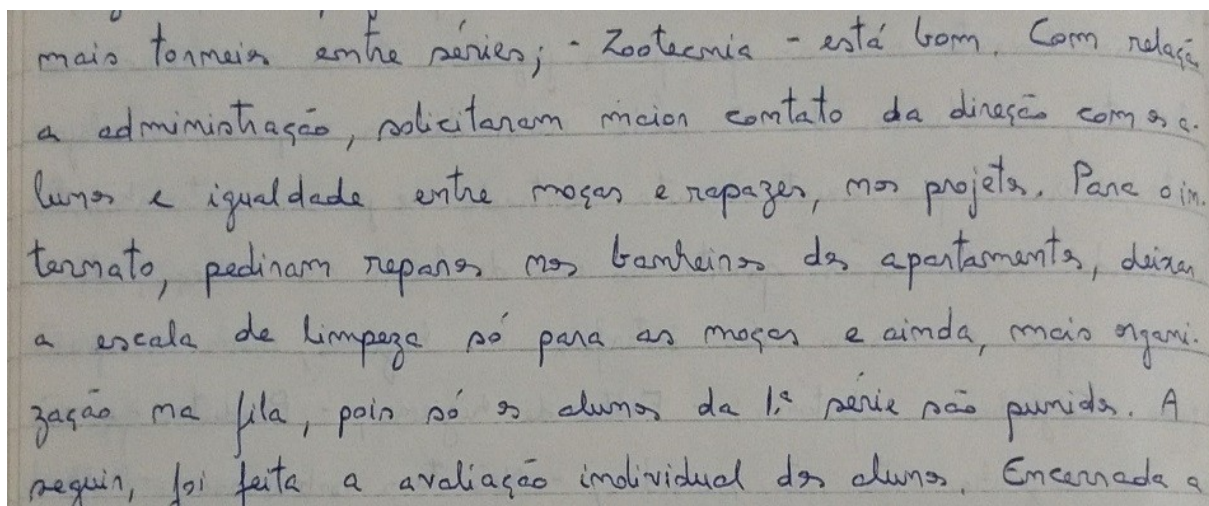 mais torneios entre séries; - Zootecnia - está bom. Com relaçã
a administração, solicitaram maior contato da direção com os a-
lunos e igualdade entre moças e rapazes, nos projetos. Para o in-
ternato, pediram reparos nos banheiros dos apartamentos, deixar
a escala de limpeza só para as moças e ainda, mais organi-
zação na fila, pois só os alunos da 1ª série são punidos. A
seguir, foi feita a avaliação individual dos alunos. Encerrada a